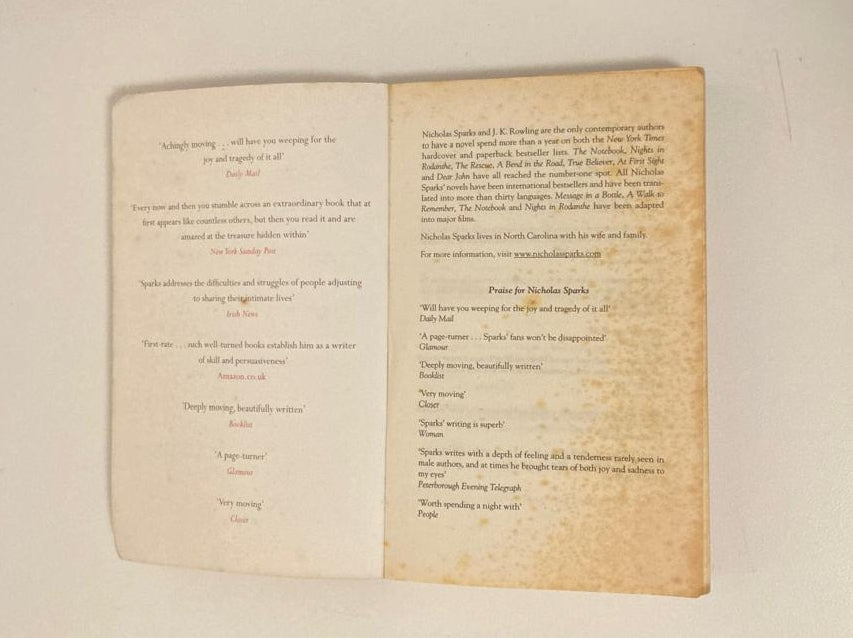 'Achingly moving . . . will have you weeping for the
joy and tragedy of it all'
Daily Mail
'Every now and then you stumble across an extraordinary book that at
first appears like countless others, but then you read it and are
amazed at the treasure hidden within'
New York Sunday Post
'Sparks addresses the difficulties and struggles of people adjusting
to sharing their intimate lives'
Irish News
'First-rate . . . such well-turned books establish him as a writer
of skill and persuasiveness'
Amazon.co.uk
'Deeply moving, beautifully written'
Booklist
'A page-turner'
Glamour
'Very moving'
Closer
Nicholas Sparks and J. K. Rowling are the only contemporary authors
to have a novel spend more than a year on both the New York Times
hardcover and paperback bestseller lists. The Notebook, Nights in
Rodanthe, The Rescue, A Bend in the Road, True Believer, At First Sight
and Dear John have all reached the number-one spot. All Nicholas
Sparks' novels have been international bestsellers and have been trans-
lated into more than thirty languages. Message in a Bottle, A Walk to
Remember, The Notebook and Nights in Rodanthe have been adapted
into major films.
Nicholas Sparks lives in North Carolina with his wife and family.
For more information, visit www.nicholassparks.com
Praise for Nicholas Sparks
'Will have you weeping for the joy and tragedy of it all'
Daily Mail
'A page-turner . . . Sparks' fans won't be disappointed'
Glamour
'Deeply moving, beautifully written'
Booklist
'Very moving'
Closer
'Sparks' writing is superb'
Woman
'Sparks writes with a depth of feeling and a tenderness rarely seen in
male authors, and at times he brought tears of both joy and sadness to
my eyes'
Peterborough Evening Telegraph
'Worth spending a night with'
People